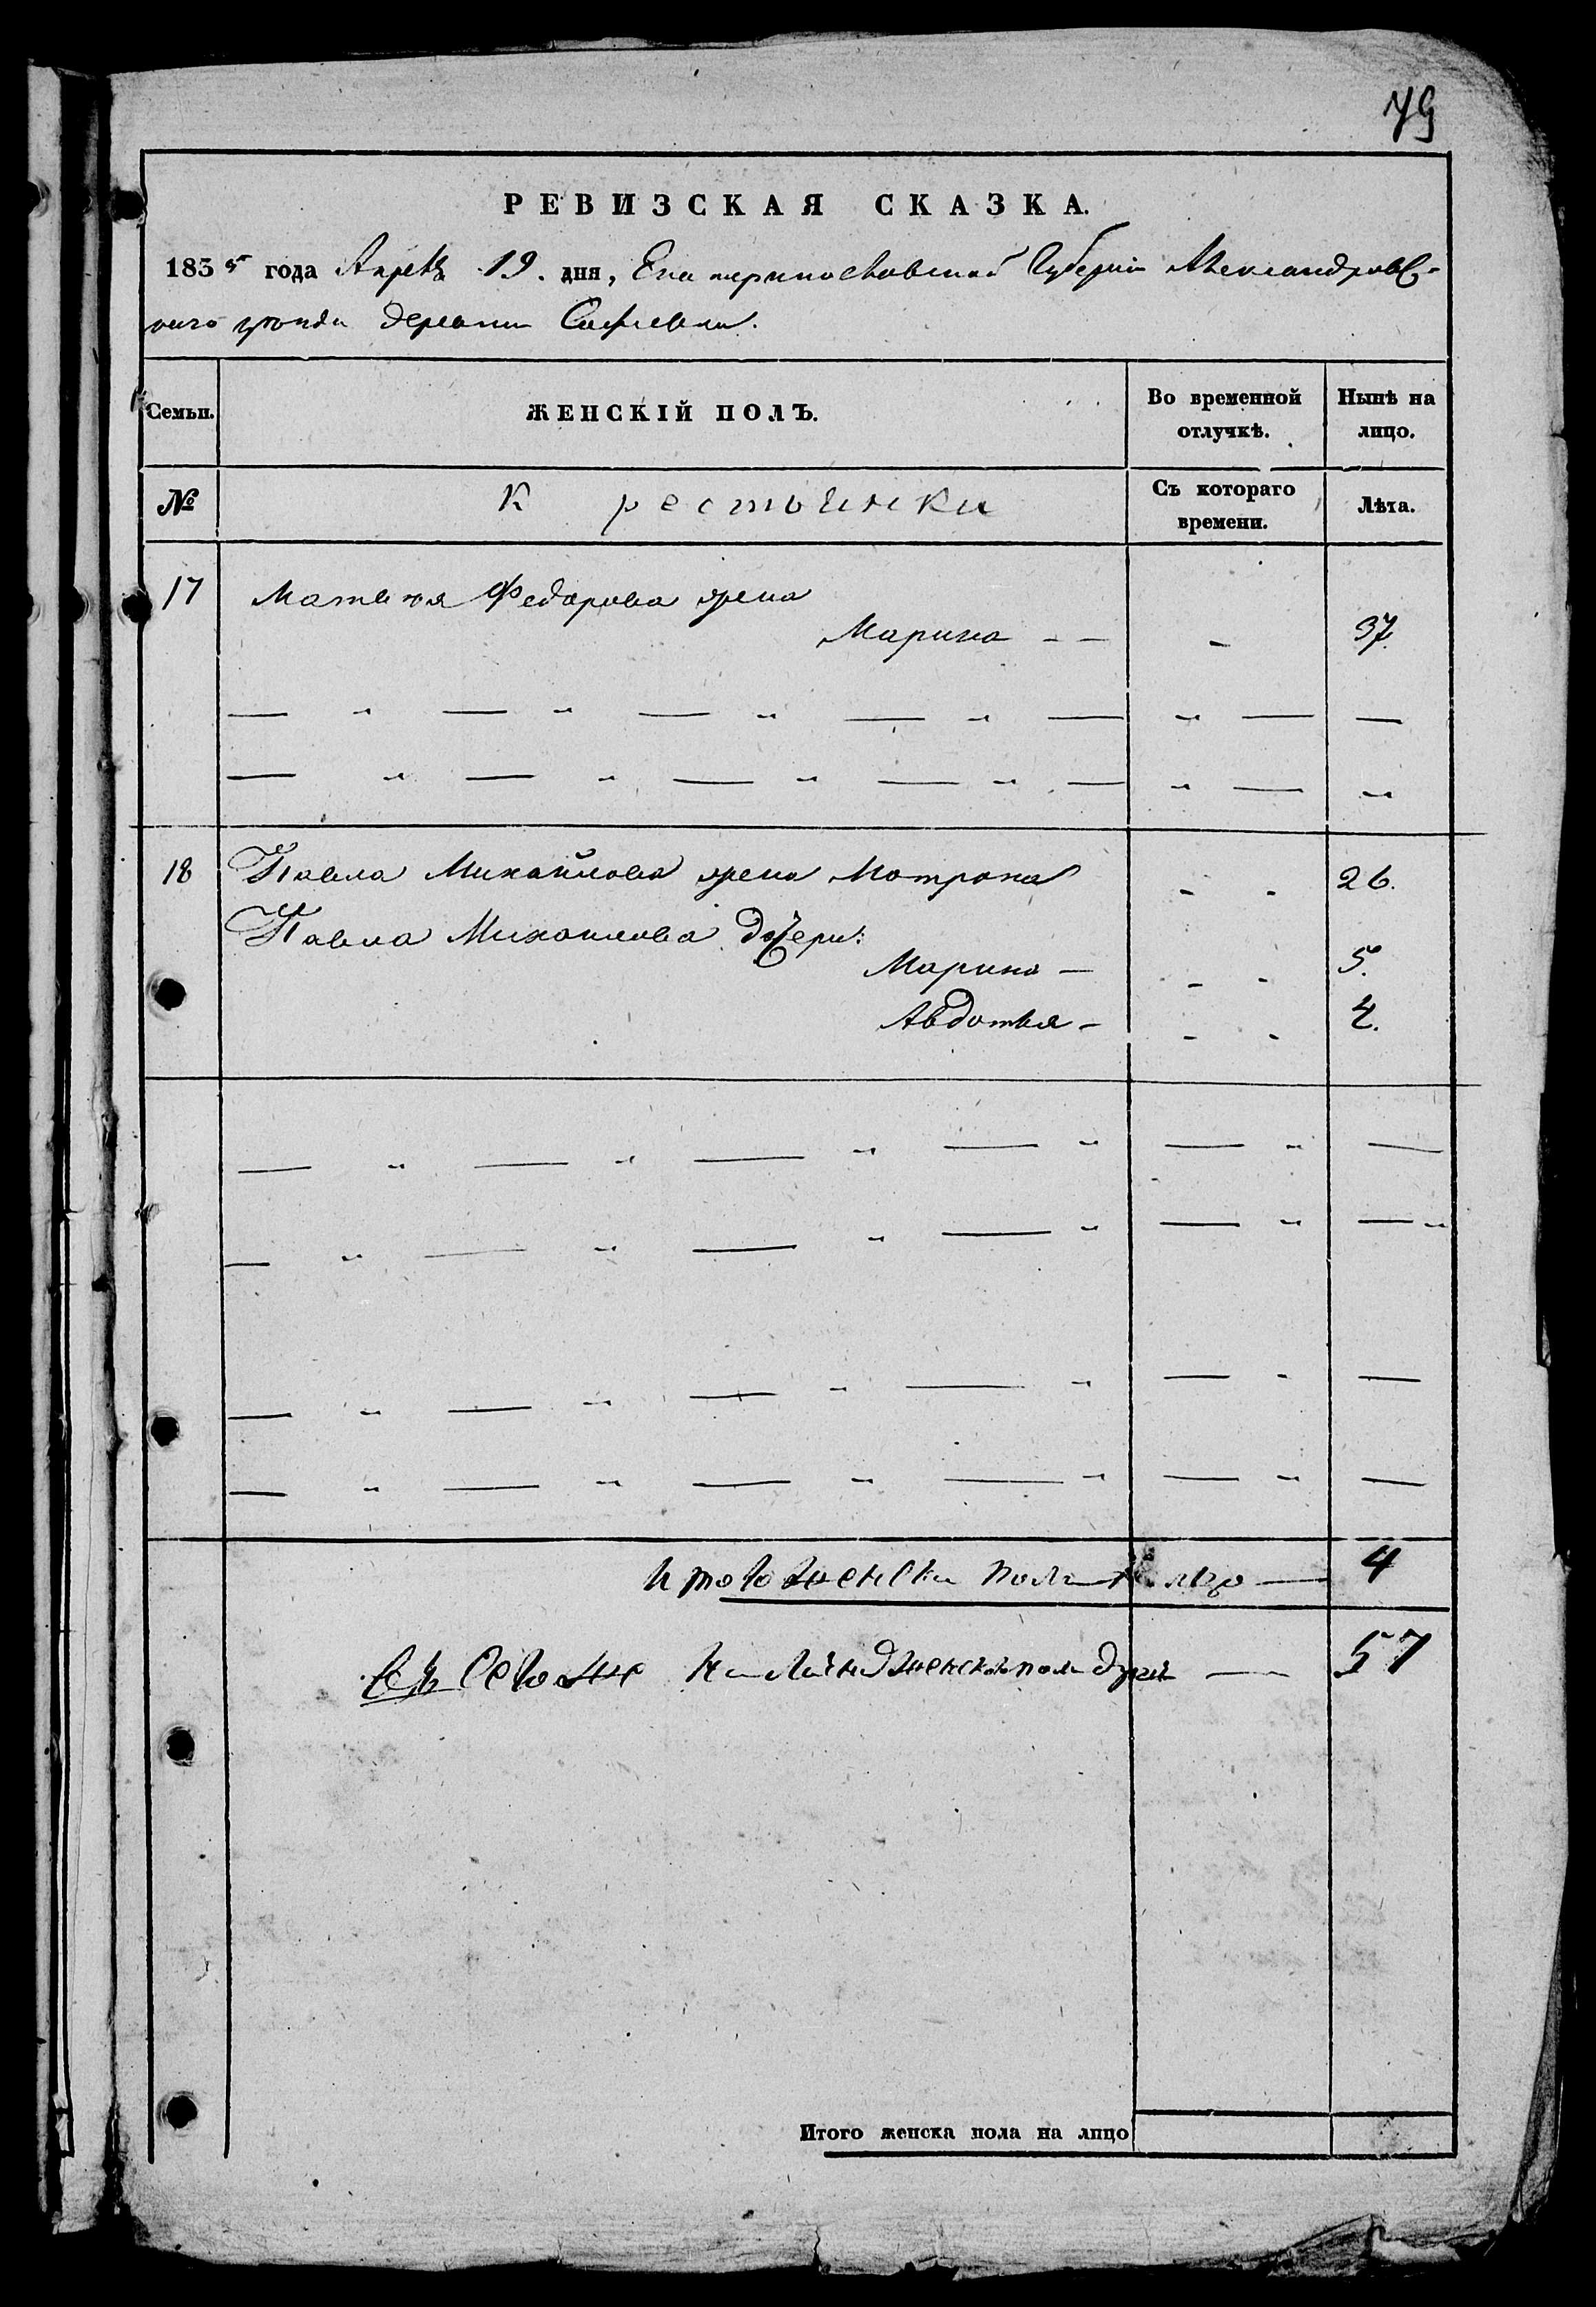 79
РЕВИЗСКАЯ СКАЗКА.
1835 года Апреля 19. дня, Екатеринославской Губернии Александровс-
каго уезда деревни
Семьи.
ЖЕНСКІЙ ПОЛЪ.
Во временной отлучкѣ.
Нынѣ на лицо.
№
Крестьянки
Съ котораго времени.
Лѣта.
17 Матвея Федорова жена
Марина — — - 37.
18 Павла Михайлова жена Мотрона - - 26.
Павла Михаилова дочери:
Марина — - - 5.
Авдотья - - - 4.
Итого женска пола на лицо — 4
Всего на женска пола душъ — 57
Итого женска пола на лицо